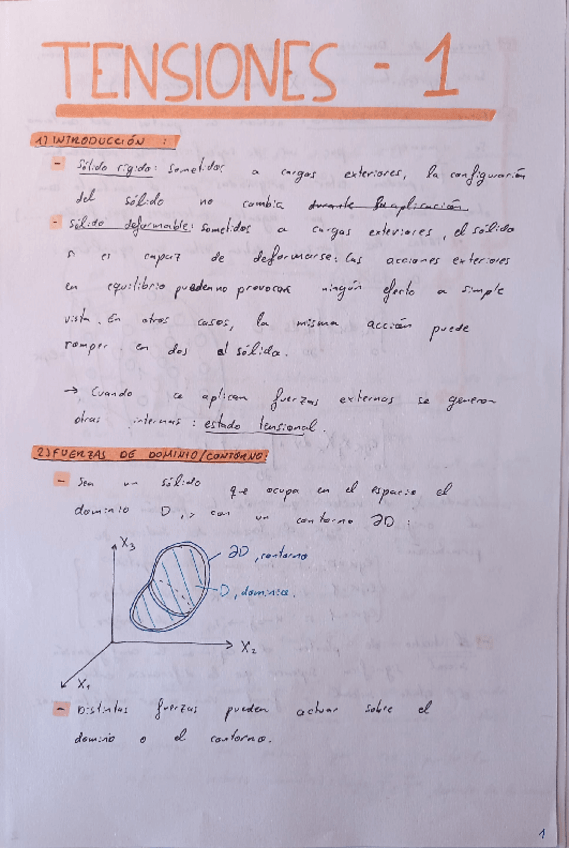 TENSIONES - 1
1) INTRODUCCIÓN :
- Sólido rígido: sometidos a cargas exteriores, la configuración
del sólido no cambia durante la aplicación
- Sólido deformable: sometidos a cargas exteriores, el sólido
si es capaz de deformarse: las acciones exteriores
en equilibrio pueden no provocar ningún efecto a simple
vista. En otros casos, la misma acción puede
romper en dos al sólido.
→ Cuando se aplican fuerzas externas se generan
otras internas : estado tensional.
2) FUERZAS DE DOMINIO/CONTORNO:
- Sea un sólido que ocupa en el espacio el
dominio D, con un contorno ∂D :
X3
∂D, contorno
D, dominio.
X2
X1
- Distintas fuerzas pueden actuar sobre el
dominio o el contorno.
1